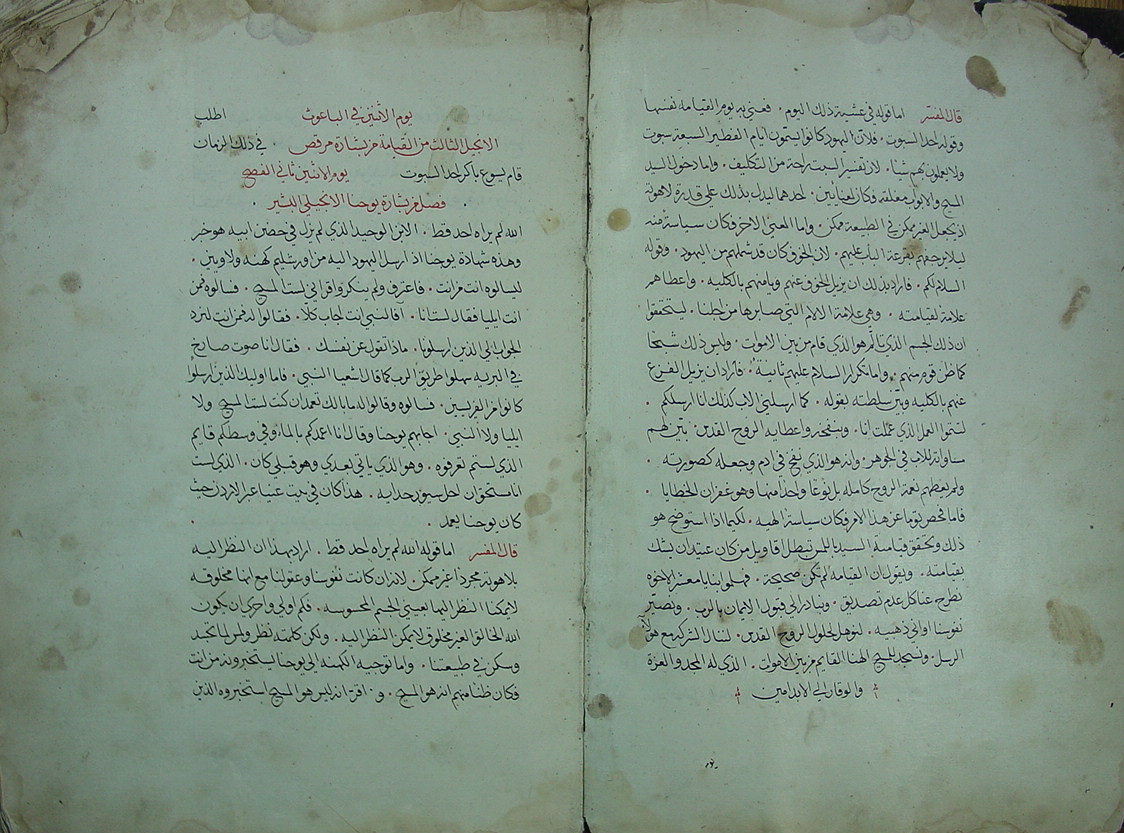 قال المفسر اما قوله في عشية ذلك اليوم . فعني به يوم القيامة نفسها
وقوله احد السبوت . فلان اليهود كانوا يسمون ايام الفطير السبعة سبوت
ولا يعملون بهم شيا . لان تفسير السبت راحة من التكليف . واما دخول السيد
المسيح والابواب مغلقة فكان لمعنايين . احدهما ليدل بذلك على قدرة لاهوته
اذ يجعل الغير ممكن في الطبيعة ممكن . واما المعنى الاخر فكان سياسة منه
ليلا يزعجهم بقرعة الباب عليهم . لان الخوف كان قد شملهم من اليهود . وقوله
السلام لكم . فاراد بذلك ان يزيل الخوف عنهم ويامنهم بالكلية . واعطاهم
علامة لقيامته . وهي علامة الالام التي صابرها من اجلنا . ليتحققوا
ان ذلك الجسم الذي تالم هو الذي قام من بين الاموات . وليس ذلك شبحا
كما ظن قوم منهم . واما تكرار السلام عليهم ثانية . فاراد ان يزيل الفزع
عنهم بالكلية وبين سلطته بقوله . كما ارسلني الاب كذلك انا ارسلكم .
لتتموا العمل الذي عملت انا . وبنفخه واعطايه الروح القدس . بين لهم
مساواته للاب في الجوهر . وانه هو الذي نفخ في ادم وجعله كصورته .
ولم يعطهم نعمة الروح كاملة بل نوعا واحدا منها وهو غفران الخطايا .
فاما فحص توما عن هذا الامر فكان سياسة الهية . لكيما اذا استوضح هو
ذلك وتحقق قيامة السيد باللمس تبطل اقاويل من كان عتيدان يشك
بقيامته . ويقول ان القيامة لم تكن صحيحة . فهلموا بنا يا معشر الاخوة
نطرح عنا كل عدم تصديق . ونبادر الى قبول الايمان بالرب . ونصير
نفوسنا اواني ذهبية . لنوهل لحلول الروح القدس . لننال الشركة مع هولا
الرسل . ونسجد للمسيح الهنا القايم من بين الاموات . الذي له المجد والعزة
والوقار الى الابد امين
يوم الاثنين في الباعوث اطلب
الانجيل الثالث من القيامة من بشارة مرقص . في ذلك الزمان
قام يسوع باكر احد السبوت يوم الاثنين ثاني الفصح
فصل من بشارة يوحنا الانجيلي البشير .
الله لم يراه احد قط . الابن الوحيد الذي لم يزل في حضن ابيه هو خبر
وهذه شهادة يوحنا اذ ارسل اليهود اليه من اورشليم كهنه ولاويين .
ليسالوه انت من انت . فاعترف ولم ينكر واقر اني لست المسيح . فسالوه فمن
انت ايليا فقال لست انا . افالنبي انت اجاب كلا . فقالوا له فمن انت لنرد
الجواب الى الذين ارسلونا . ماذا تقول عن نفسك . فقال انا صوت صارخ
في البريه سهلوا طريق الرب كما قال اشعيا النبي . فاما اوليك الذين ارسلوا
كانوا من الفريسيين . فسالوه وقالوا له ما بالك تعمد ان كنت لست المسيح ولا
ايليا ولا النبي . اجابهم يوحنا وقال انا اعمدكم بالماء وفي وسطكم قايم
الذي لستم تعرفوه . وهو الذي ياتي بعدي وهو قبلي كان . الذي لست
انا مستحق ان احل سيور حذايه . هذا كان في بيت عنيا عبر الاردن حيث
كان يوحنا يعمد .
قال المفسر اما قوله الله لم يراه احد قط . اراد بهذا ان النظر اليه
بلاهوته مجردا غير ممكن . لانه ان كانت نفوسنا وعقولنا مع انها مخلوقه
لا يمكننا النظر اليها بعيني الجسم المحسوسه . فكم اولى واحرى ان يكون
الله الخالق الغير مخلوق لا يمكن النظر اليه . ولكن كلمته نظر ولمس لما تجسد
وسكن في طبيعتنا . واما توجيه الكهنه الى يوحنا ليستخبرونه من انت
فكان ظنا منهم انه هو المسيح . و اقر انه ليس هو المسيح استخبروه الذين